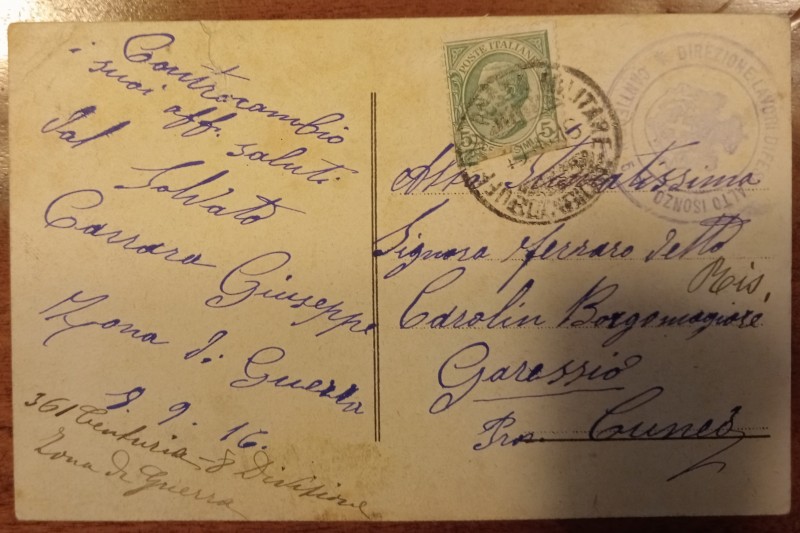 Contrecambio
i suoi aff. saluti
Dal Soldato
Carrara Giuseppe
Zona di Guerra
8 9. 16.
361 Centuria - 8 Divisione
Zona di Guerra
POSTE ITALIANE
MILITARE
DIREZIONE LAVORI DIFE
ALTO ISONZO
Alla Stimatissima
Signora Ferraro detto
Ris.
Carolin Borgomagiore
Garessio
Prov. Cuneo